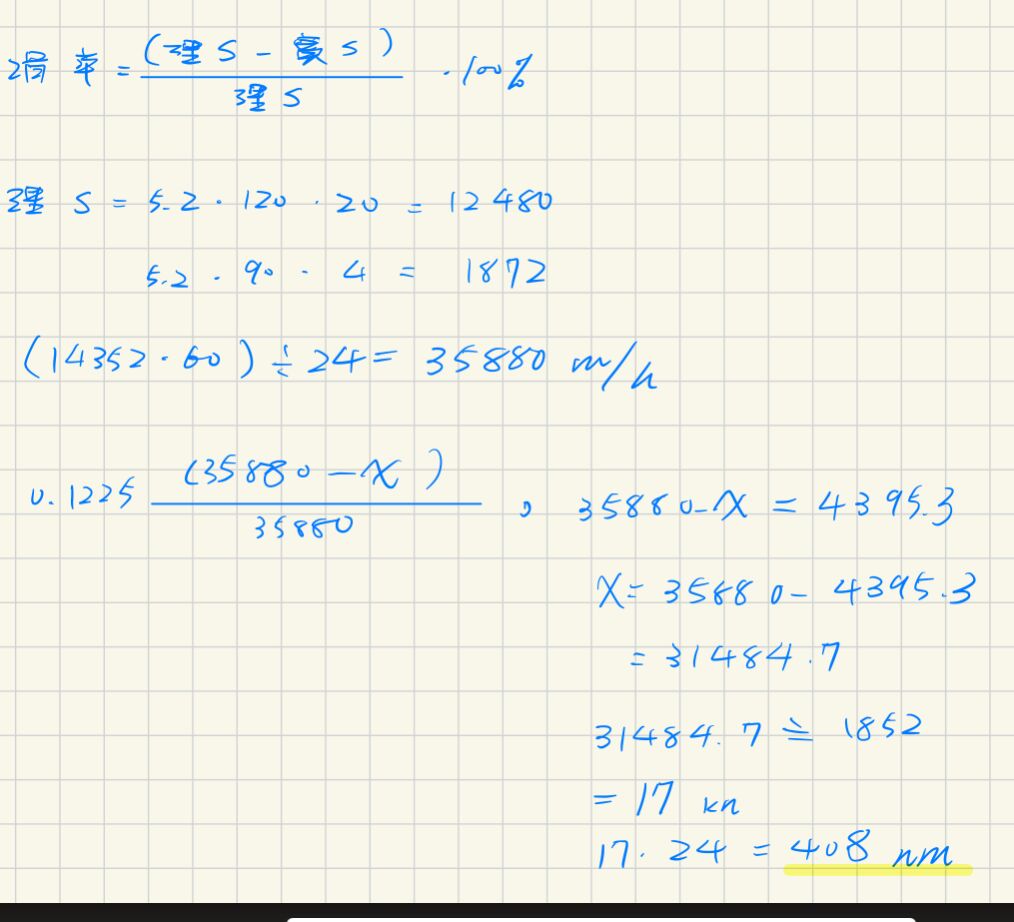 滑率 = (理S - 實S) / 理S · 100%
理 S = 5.2 · 120 · 20 = 12480
5.2 · 90 · 4 = 1872
(14352 · 60) ÷ 24 = 35880 m/h
0.1225 (35880 - x) / 35880 , 35880 - x = 4395.3
x = 35880 - 4395.3
= 31484.7
31484.7 ÷ 1852
= 17 kn
17 · 24 = 408 nm